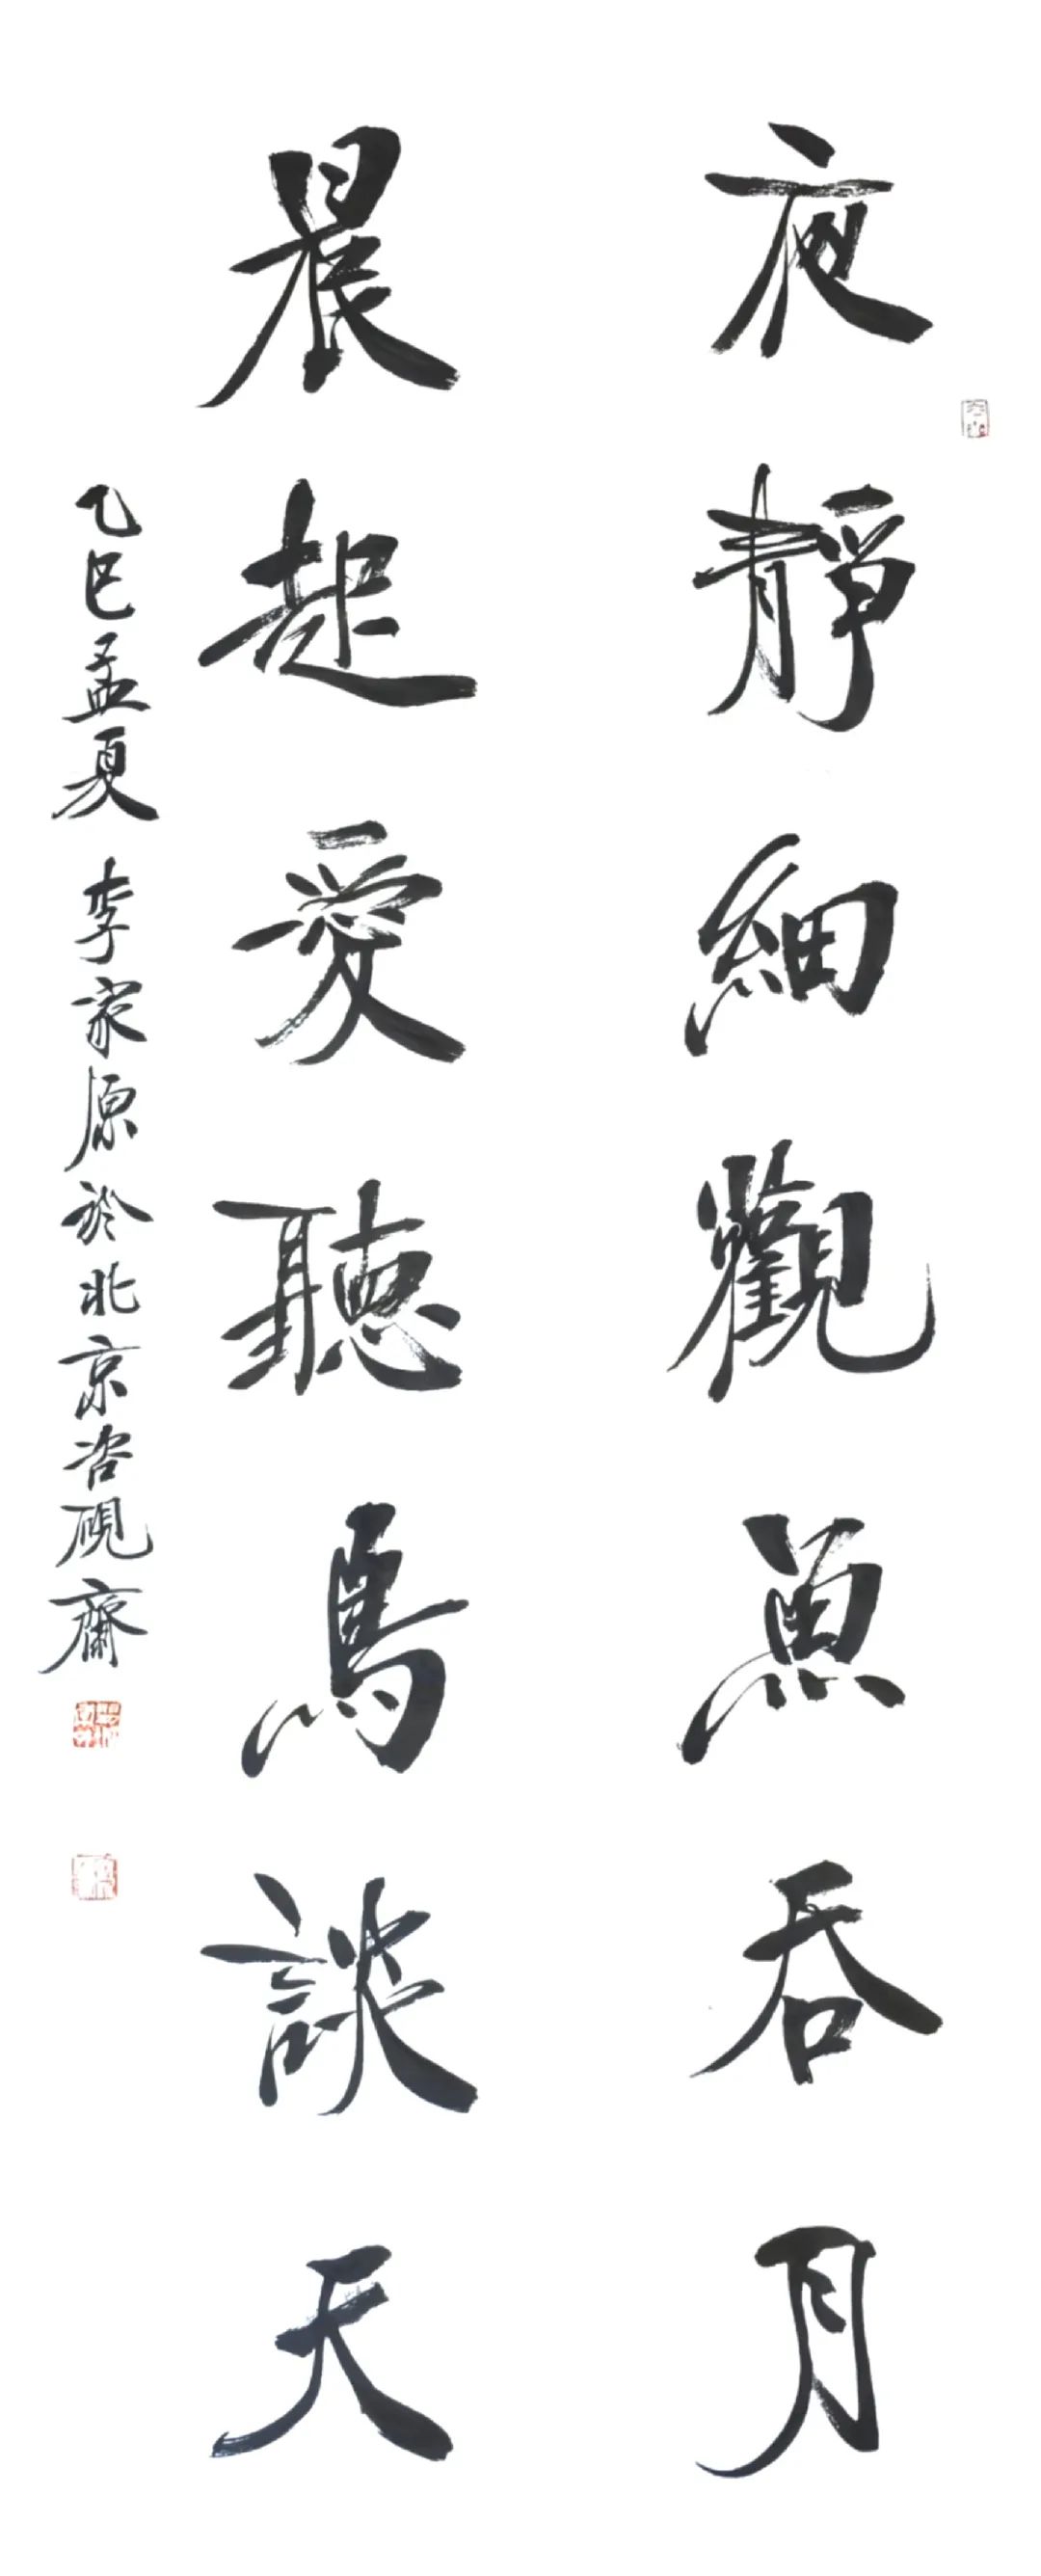 夜靜細觀魚吞月
晨起愛聽鳥談天
乙巳孟夏 李家原於北京咨硯齋